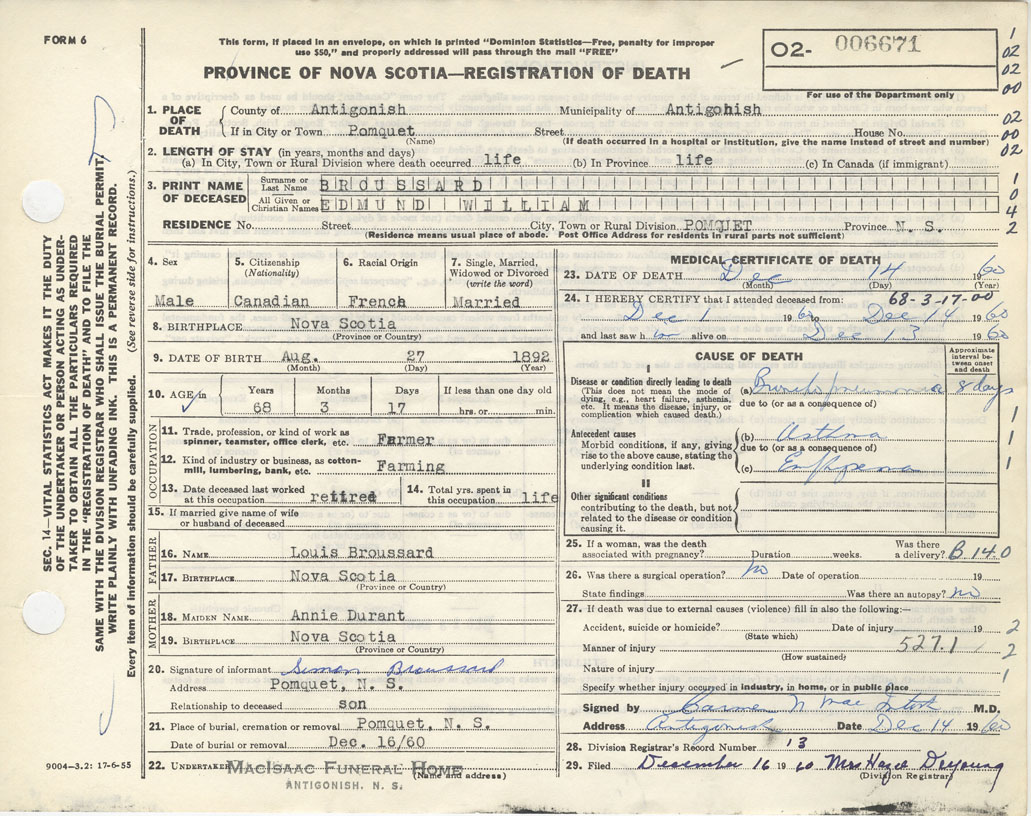 FORM 6
This form, if placed in an envelope, on which is printed "Dominion Statistics—Free, penalty for improper
use $50," and properly addressed will pass through the mail "FREE"
PROVINCE OF NOVA SCOTIA—REGISTRATION OF DEATH
O2- 006671
For use of the Department only
1
02
02
00
02
00
02
1
0
4
2
SEC. 14—VITAL STATISTICS ACT MAKES IT THE DUTY
OF THE UNDERTAKER OR PERSON ACTING AS UNDER-
TAKER TO OBTAIN ALL THE PARTICULARS REQUIRED
IN THE "REGISTRATION OF DEATH" AND TO FILE THE
SAME WITH THE DIVISION REGISTRAR WHO SHALL ISSUE THE BURIAL PERMIT.
WRITE PLAINLY WITH UNFADING INK. THIS IS A PERMANENT RECORD.
Every item of information should be carefully supplied. (See reverse side for instructions.)
1. PLACE OF DEATH
County of Antigonish Municipality of Antigohish
If in City or Town Pomquet Street House No.
(Name) (If death occurred in a hospital or institution, give the name instead of street and number)
2. LENGTH OF STAY (in years, months and days)
(a) In City, Town or Rural Division where death occurred life (b) In Province life (c) In Canada (if immigrant)
3. PRINT NAME OF DECEASED
Surname or Last Name BROUSSARD
All Given or Christian Names EDMUND WILLIAM
RESIDENCE No. Street City, Town or Rural Division POMQUET Province N. S.
(Residence means usual place of abode. Post Office Address for residents in rural parts not sufficient)
4. Sex
Male
5. Citizenship
(Nationality)
Canadian
6. Racial Origin
French
7. Single, Married,
Widowed or Divorced
(write the word)
Married
8. BIRTHPLACE Nova Scotia
(Province or Country)
9. DATE OF BIRTH Aug. 27 1892
(Month) (Day) (Year)
10. AGE in Years Months Days If less than one day old
68 3 17 hrs. or min.
OCCUPATION
11. Trade, profession or kind of work as
spinner, teamster, office clerk, etc. Farmer
12. Kind of industry or business, as cotton-
mill, lumbering, bank, etc. Farming
13. Date deceased last worked
at this occupation retired
14. Total yrs. spent in
this occupation life
15. If married give name of wife
or husband of deceased
FATHER
16. NAME Louis Broussard
17. BIRTHPLACE Nova Scotia
(Province or Country)
MOTHER
18. MAIDEN NAME Annie Durant
19. BIRTHPLACE Nova Scotia
(Province or Country)
20. Signature of informant Simon Broussard
Address Pomquet, N. S.
Relationship to deceased son
21. Place of burial, cremation or removal Pomquet, N. S.
Date of burial or removal Dec. 16/60
22. UNDERTAKER MACISAAC FUNERAL HOME
(Name and address)
ANTIGONISH. N. S.
9004—3.2: 17-6-55
MEDICAL CERTIFICATE OF DEATH
23. DATE OF DEATH Dec 14 1960
(Month) (Day) (Year)
68-3-17-00
24. I HEREBY CERTIFY that I attended deceased from:
Dec 1 1960 to Dec 14 1960
and last saw h alive on Dec 13 1960
CAUSE OF DEATH
Approximate
interval be-
tween onset
and death
I
Disease or condition directly leading to death
(This does not mean the mode of
dying, e.g., heart failure, asthenia,
etc. It means the disease, injury, or
complication which caused death.)
(a) 8 days
due to (or as a consequence of)
Antecedent causes
Morbid conditions, if any, giving
rise to the above cause, stating the
underlying condition last.
(b) Asthma
due to (or as a consequence of)
(c)
1
1
1
II
Other significant conditions
contributing to the death, but not
related to the disease or condition
causing it.
25. If a woman, was the death
associated with pregnancy? Duration weeks. Was there
a delivery? B 140
26. Was there a surgical operation? no Date of operation 19
State findings Was there an autopsy? no
27. If death was due to external causes (violence) fill in also the following:—
Accident, suicide or homicide? Date of injury 19 2
(State which)
Manner of injury 527.1 2
(How sustained)
Nature of injury 1
Specify whether injury occurred in industry, in home, or in public place
Signed by M.D.
Address Antigonish Date Dec 14 1960
28. Division Registrar's Record Number 13
29. Filed December 16 1960 Mrs Hazel DeYoung
(Division Registrar)